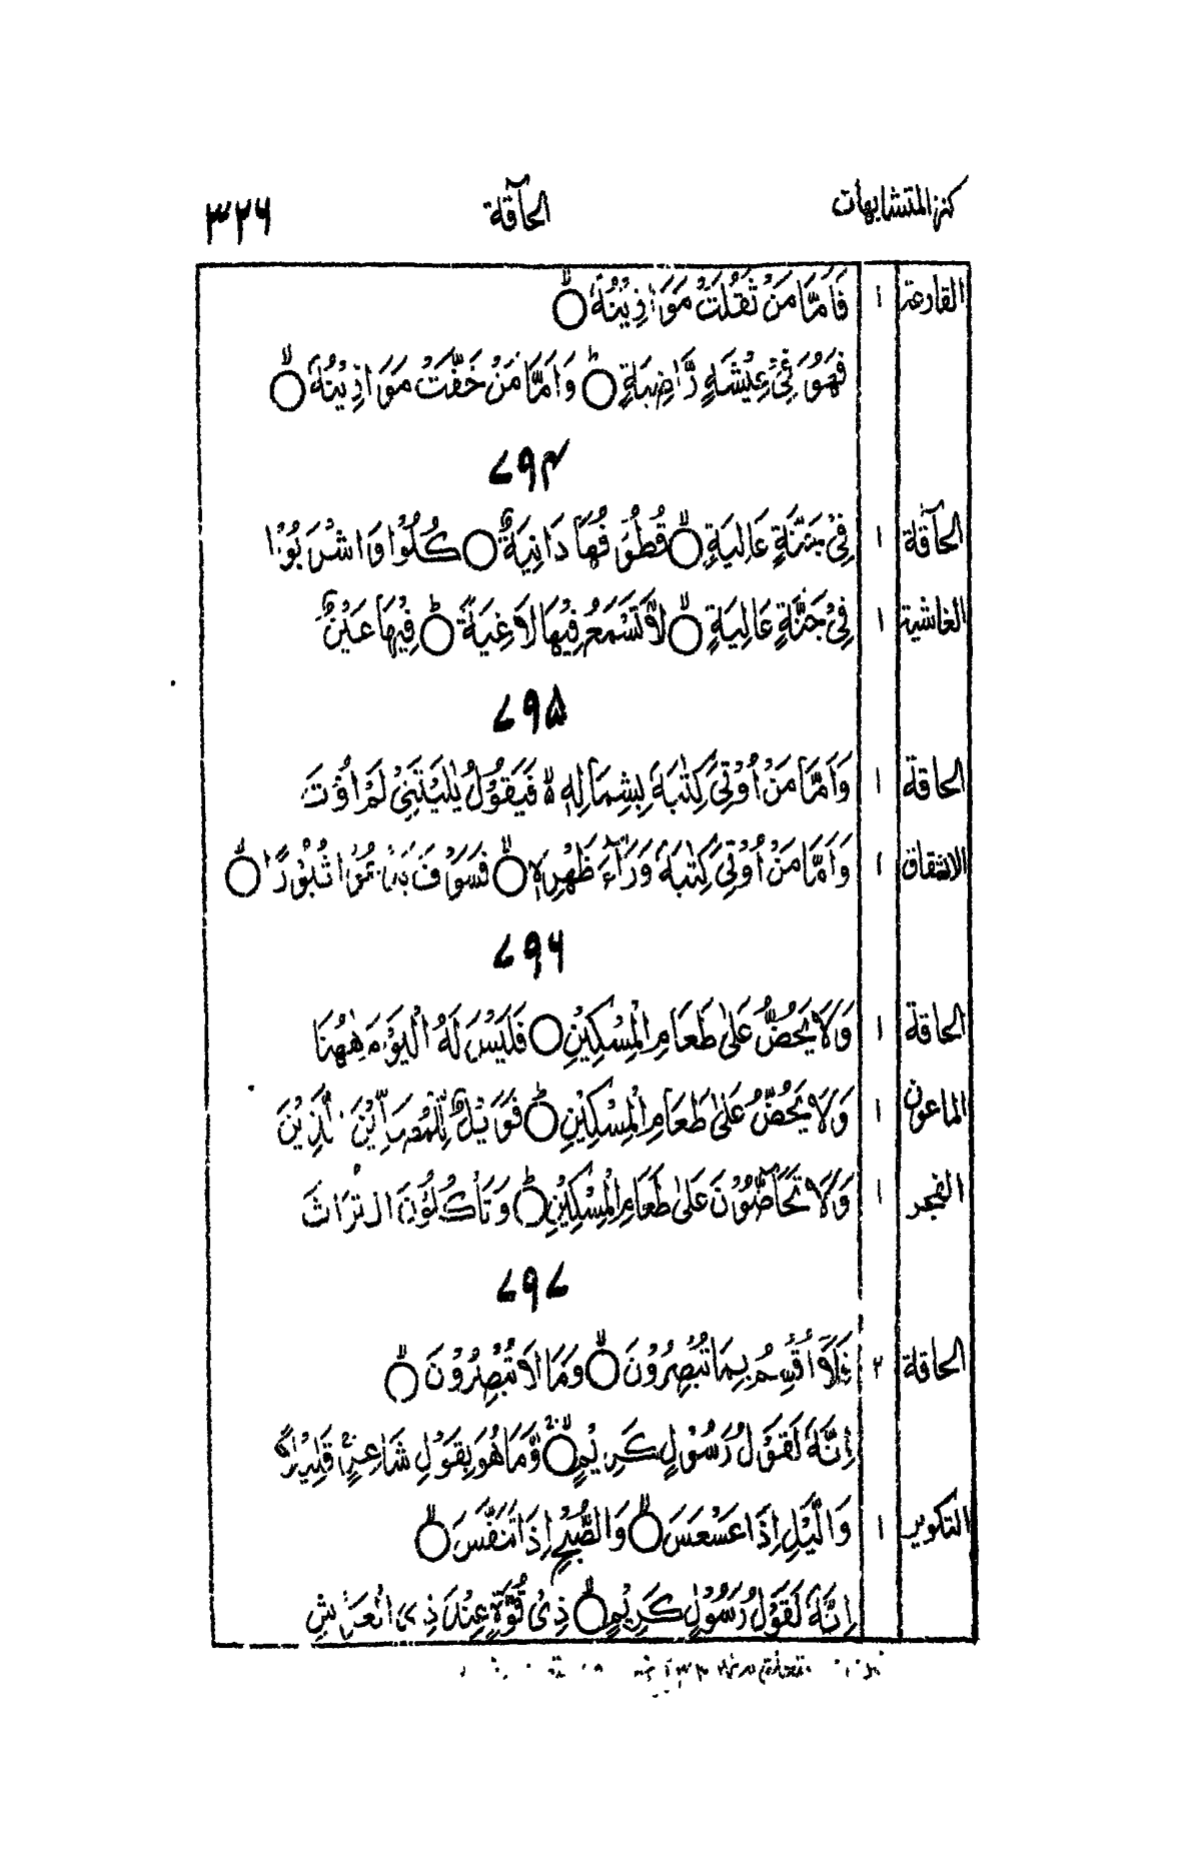 كنز المتشابهات الحآقة ٣٢٦
القارعة ١ فَاَمَّا مَنْ ثَقُلَتْ مَوَازِيْنُهٗ ۙ
فَهُوَ فِيْ عِيْشَةٍ رَّاضِيَةٍ ؕ وَاَمَّا مَنْ خَفَّتْ مَوَازِيْنُهٗ ۙ
۷۹۴
الحآقة ١ فِيْ جَنَّةٍ عَالِيَةٍ ۙ قُطُوْفُهَا دَانِيَةٌ كُلُوْا وَاشْرَبُوْا
الغاشية ١ فِيْ جَنَّةٍ عَالِيَةٍ ۙ لَّا تَسْمَعُ فِيْهَا لَاغِيَةً ؕ فِيْهَا عَيْنٌ
۷۹۵
الحاقة ١ وَاَمَّا مَنْ اُوْتِيَ كِتٰبَهٗ بِشِمَالِهٖ ۙ فَيَقُوْلُ يٰلَيْتَنِيْ لَمْ اُوْتَ
الانشقاق ١ وَاَمَّا مَنْ اُوْتِيَ كِتٰبَهٗ وَرَآءَ ظَهْرِهٖ ۙ فَسَوْفَ يَدْعُوْا ثُبُوْرًا ۙ
۷۹۶
الحاقة ١ وَلَا يَحُضُّ عَلٰى طَعَامِ الْمِسْكِيْنِ فَلَيْسَ لَهُ الْيَوْمَ هٰهُنَا
الماعون ١ وَلَا يَحُضُّ عَلٰى طَعَامِ الْمِسْكِيْنِ ؕ فَوَيْلٌ لِّلْمُصَلِّيْنَ الَّذِيْنَ
الفجر ١ وَلَا تَحٰٓضُّوْنَ عَلٰى طَعَامِ الْمِسْكِيْنِ ۙ وَتَاْكُلُوْنَ التُّرَاثَ
۷۹۷
الحاقة ٢ فَلَآ اُقْسِمُ بِمَا تُبْصِرُوْنَ ۙ وَمَا لَا تُبْصِرُوْنَ ۙ
اِنَّهٗ لَقَوْلُ رَسُوْلٍ كَرِيْمٍ ۙ وَّمَا هُوَ بِقَوْلِ شَاعِرٍ ؕ قَلِيْلًا
التكوير ١ وَالَّيْلِ اِذَا عَسْعَسَ ۙ وَالصُّبْحِ اِذَا تَنَفَّسَ ۙ
اِنَّهٗ لَقَوْلُ رَسُوْلٍ كَرِيْمٍ ۙ ذِيْ قُوَّةٍ عِنْدَ ذِي الْعَرْشِ